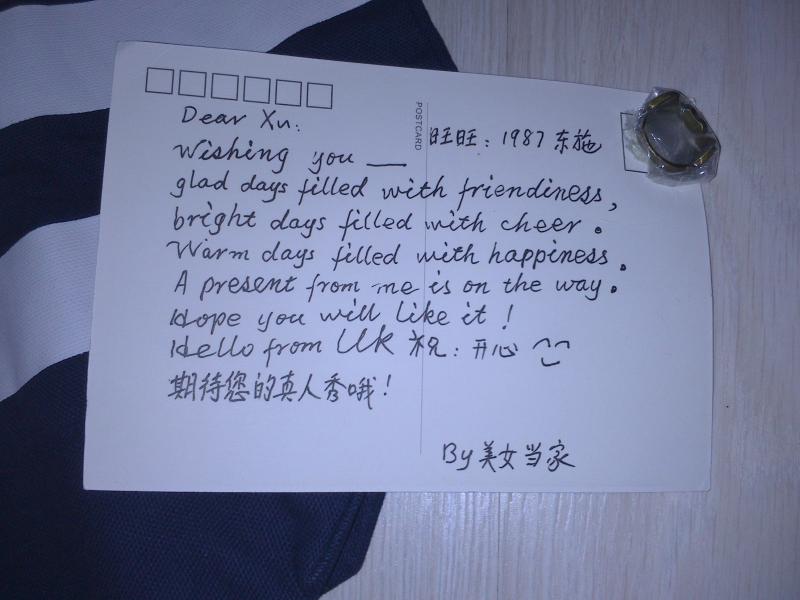 POSTCARD
Dear Xu:
旺旺: 1987东施
Wishing you —
glad days filled with friendiness,
bright days filled with cheer.
Warm days filled with happiness.
A present from me is on the way.
Hope you will like it!
Hello from UK 祝: 开心
期待您的真人秀哦!
By 美女当家